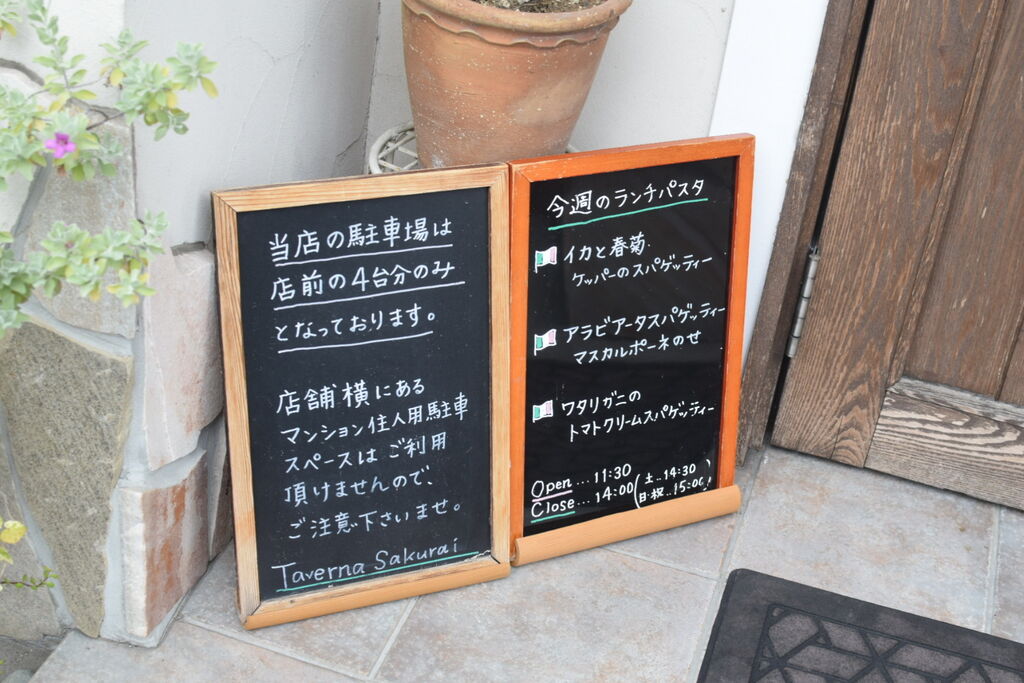 当店の駐車場は
店前の4台分のみ
となっております。
店舗横にある
マンション住人用駐車
スペースはご利用
頂けませんので、
ご注意下さいませ。
Taverna Sakurai
今週のランチパスタ
イカと春菊
ケッパーのスパゲッティー
アラビアータスパゲッティー
マスカルポーネのせ
ワタリガニの
トマトクリームスパゲッティー
Open…11:30
Close…14:00(土..14:30
日・祝..15:00)